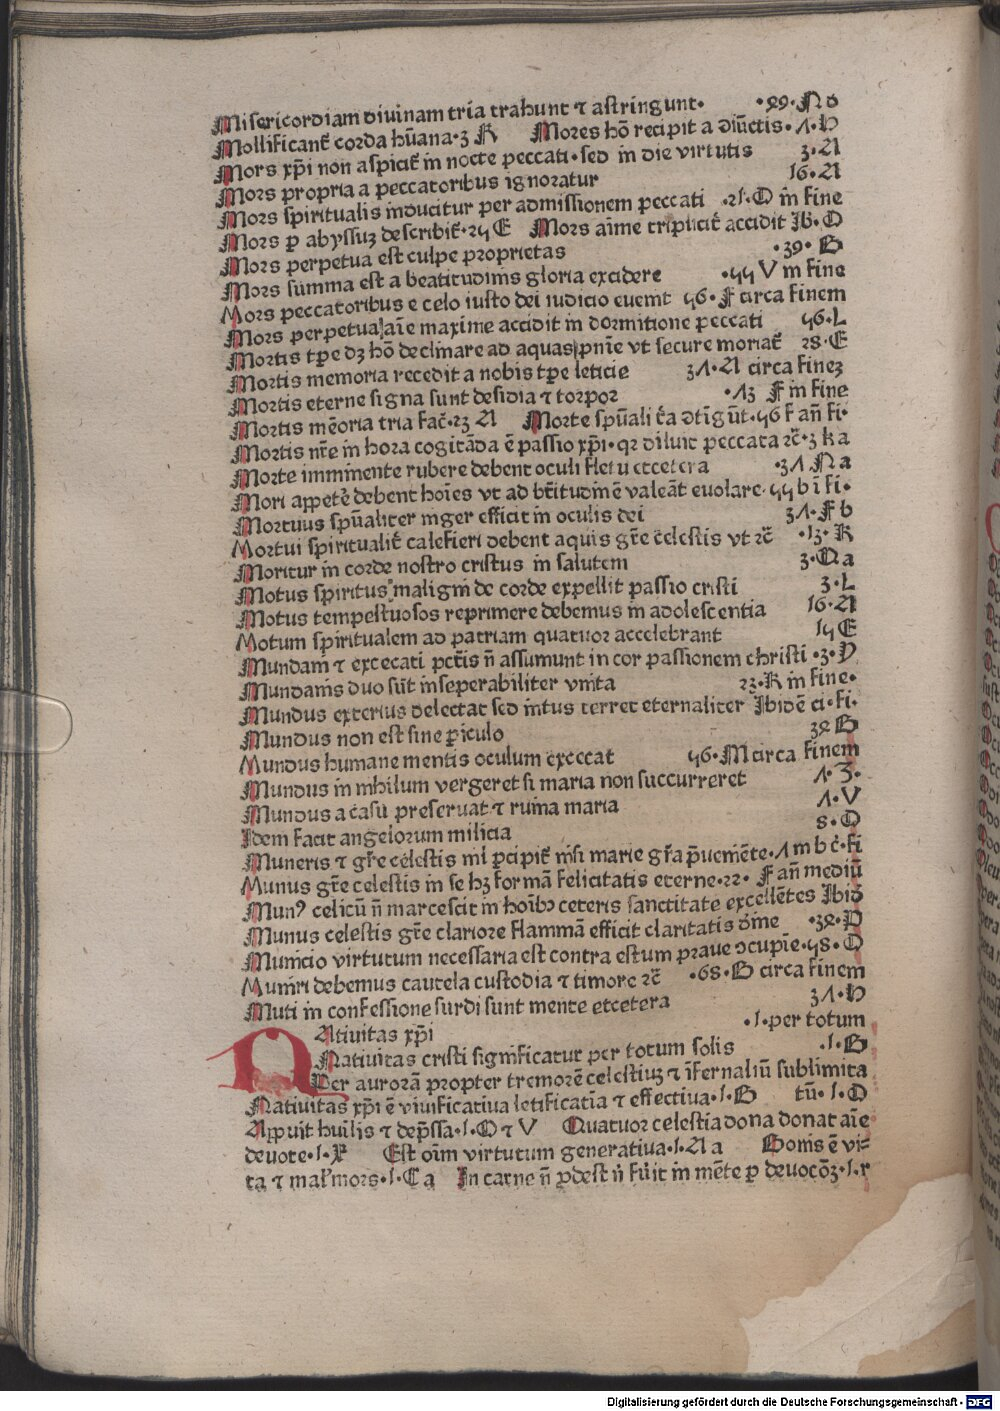 Misericordiam diuinam tria trahunt ⁊ astringunt· ·29·N d
Mollificant᷑ corda hūana·3 K Mores hō recipit a diūctis·Λ·H
Mors xp̄i non aspicit᷑ in nocte peccati·sed in die virtutis 3·A
Mors propria a peccatoribus ignoratur 16·A
Mors spiritualis inducitur per admissionem peccati ·21·O in fine
Mors ꝑ abyssuz describit᷑·25 E Mors aīme tripliciť accidit Ib·O
Mors perpetua est culpe proprietas ·39· B
Mors sūmma est a beatitudinis gloria excidere ·55 V in fine
Mors peccatoribus e celo iusto dei iudicio euenit 56·F circa finem
Mors perpetua aīe maxime accidit in dormitione peccati 56·L
Mortis tꝑe dꝫ hō declinare ad aquas pn̄ie vt secure moriat᷑ 28·E
Mortis memoria recedit a nobis tꝑe leticie 3Λ·A circa finez
Mortis eterne signa sunt desidia ⁊ torpor ·Λ3 F in fine
Mortis mēoria tria fac̄·23 A Morte spūali t̄ra dt̄ig ūt·56 F an̄ fi·
Mortis nr̄e in hora cogitāda ē passio xp̄i·qꝛ diluit peccata ⁊c̄·3 k a
Morte imminente rubere debent oculi fletu etcetera ·3Λ N a
Mori appetē debent hoīes vt ad bt̄itudinē valeāt euolare·55 b ī fi·
Mortuus spūaliter niger efficit in oculis dei 3Λ·F b
Mortui spiritualit᷑ calefieri debent aquis gr̄e celestis vt ⁊c̄ ·13·K
Moritur in corde nostro cristus in salutem 3·Q a
Motus spiritus maligni de corde expellit passio cristi 3·L
Motus tempestuosos reprimere debemus in adolescentia 16·A
Motum spiritualem ad patriam quatuor accelebrant 15 E
Mundani ⁊ excecati pct̄is n̄ assumunt in cor passionem christi ·3·Y
Mundanis duo sūt inseperabiliter vnita 23·K in fine·
Mundus exterius delectat sed intus terret eternaliter Ibidē ci·fi·
Mundus non est sine ꝑiculo 32 B
Mundus humane mentis oculum excecat 56·M circa finem
Mundus in nihilum vergeret si maria non succurreret Λ·Z·
Mundus a casu preseruat ⁊ ruina maria Λ·V
Idem facit angelorum milicia 8·O
Muneris ⁊ gr̄e celestis nil ꝑcipit᷑ nisi marie gr̄a p̄ueniēte·Λ m b c̄·fi
Munus gr̄e celestis in se hꝫ formā felicitatis eterne·22· F an̄ mediū
Munꝰ celicū n̄ marcescit in hoībꝫ ceteris sanctitate excellētes Ibid
Munus celestis gr̄e clariore flammā efficit claritatis dīne ·32·P
Municio virtutum necessaria est contra estum praue ɔcupīe·58·O
Muniri debemus cautela custodia ⁊ timore ⁊c̄ ·68·B circa finem
Muti in confessione surdi sunt mente etcetera 3Λ·H
Natiuitas xp̄i ·1·per totum
Natiuitas cristi significatur per totum solis ·1·B
Per aurorā propter tremorē celestiuꝫ ⁊ īfernaliū sublimita
Natiuitas xp̄i ē viuificatiua letificatīa ⁊ effectiua·1·B tū· 1·O
Apꝑuit huīlis ⁊ dep̄ssa·1·O ⁊ V Quatuor celestia dona donat aīe
deuote·1·X Est oīm virtutum generatiua·1·A a Bonis ē vi⸗
ta ⁊ mal᷑ mors·1·C a In carne n̄ ꝓdest n̄ fūit in mēte ꝑ deuocōꝫ·1·r
Digitalisierung gefördert durch die Deutsche Forschungsgemeinschaft - DFG